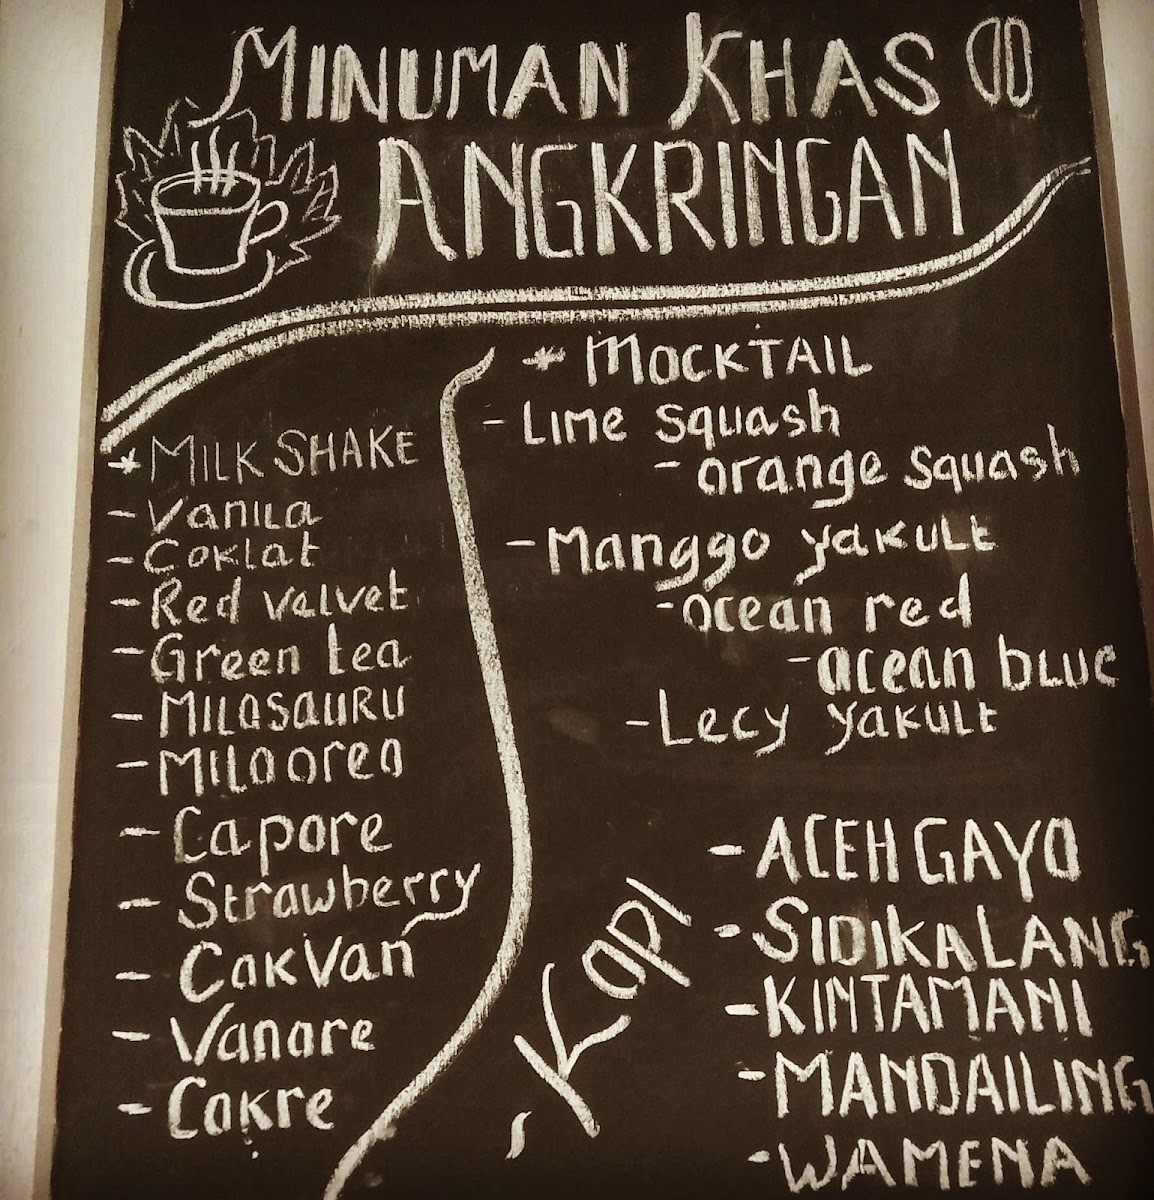 MINUMAN KHAS
ANGKRINGAN
* MILK SHAKE
- Vanila
- Coklat
- Red valvet
- Green tea
- MILOSAURU
- MILO oreo
- Capore
- Strawberry
- CokVan
- Vanore
- Cokre
* MOCKTAIL
- Lime squash
- orange squash
- Manggo yakult
- ocean red
- ocean blue
- Lecy yakult
- Kopi
- ACEH GAYO
- SIDIKALANG
- KINTAMANI
- MANDAILING
- WAMENA